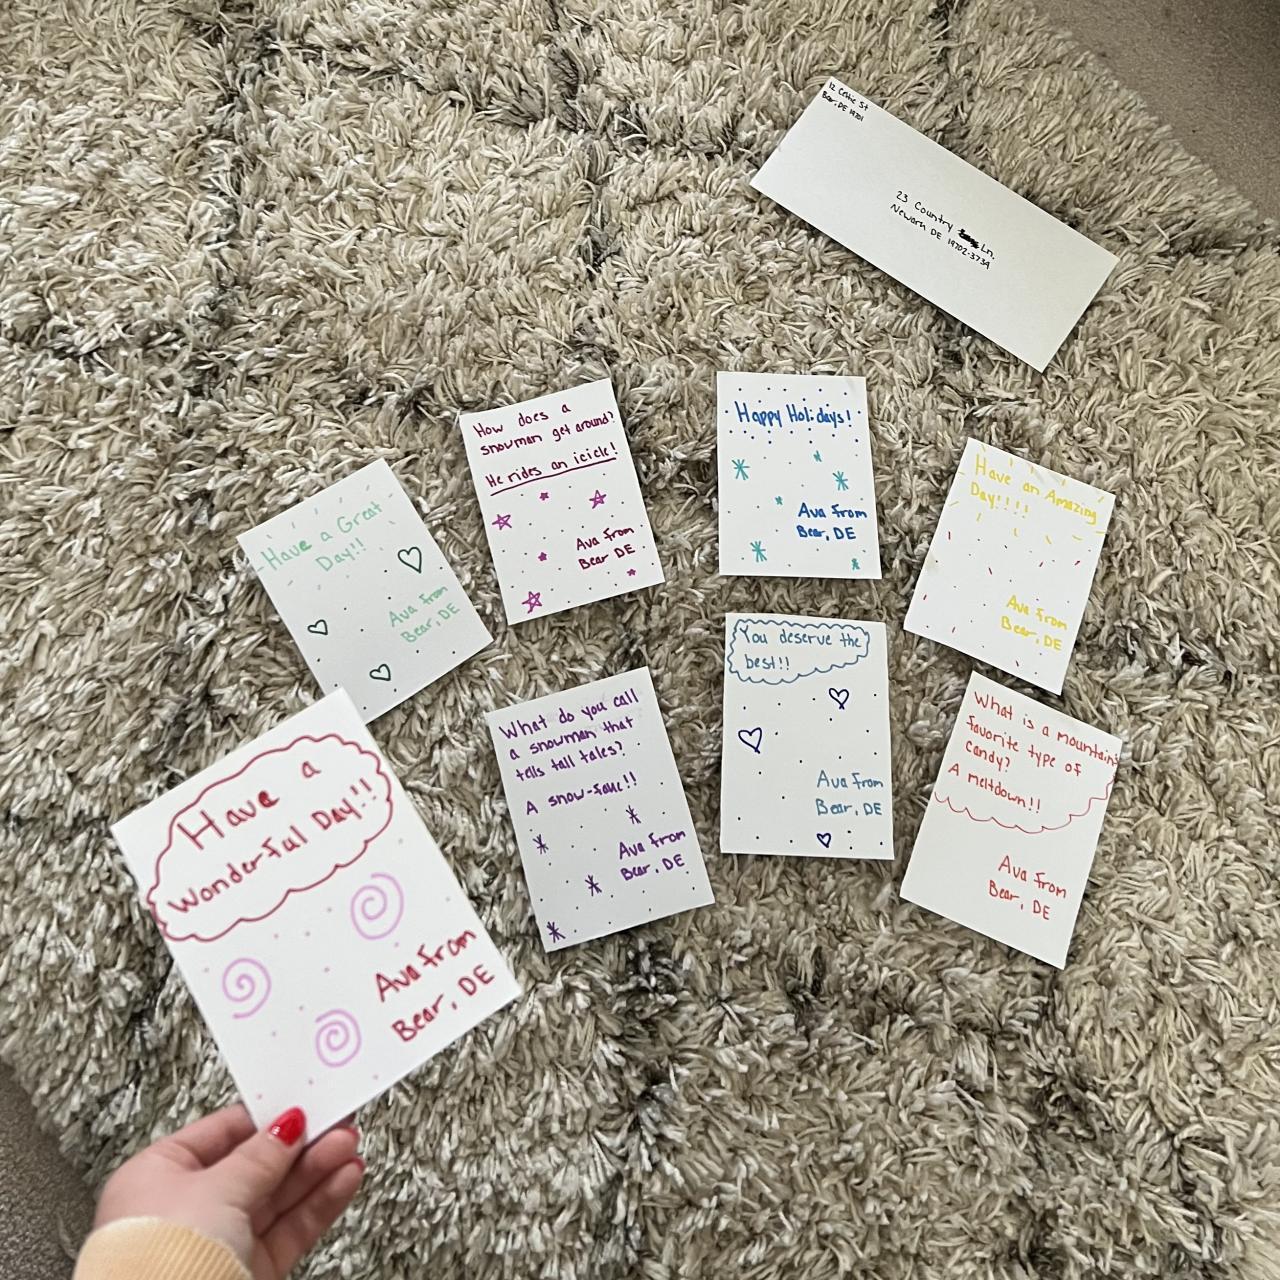 12 Celtic St
Bear, DE 19701
23 Country Ln.
Newark DE 19702-3734
How does a
snowman get around?
He rides an icicle!
Ava from
Bear DE
Happy Holidays!
Ava from
Bear, DE
Have an Amazing
Day!!!!
Ava from
Bear, DE
Have a Great
Day!!
Ava from
Bear, DE
You deserve the
best!!
Ava from
Bear, DE
What do you call
a snowman that
tells tall tales?
A snow-fake!!
Ava from
Bear, DE
What is a mountains
favorite type of
candy?
A meltdown!!
Ava from
Bear, DE
Have a
Wonderful Day!!
Ava from
Bear, DE